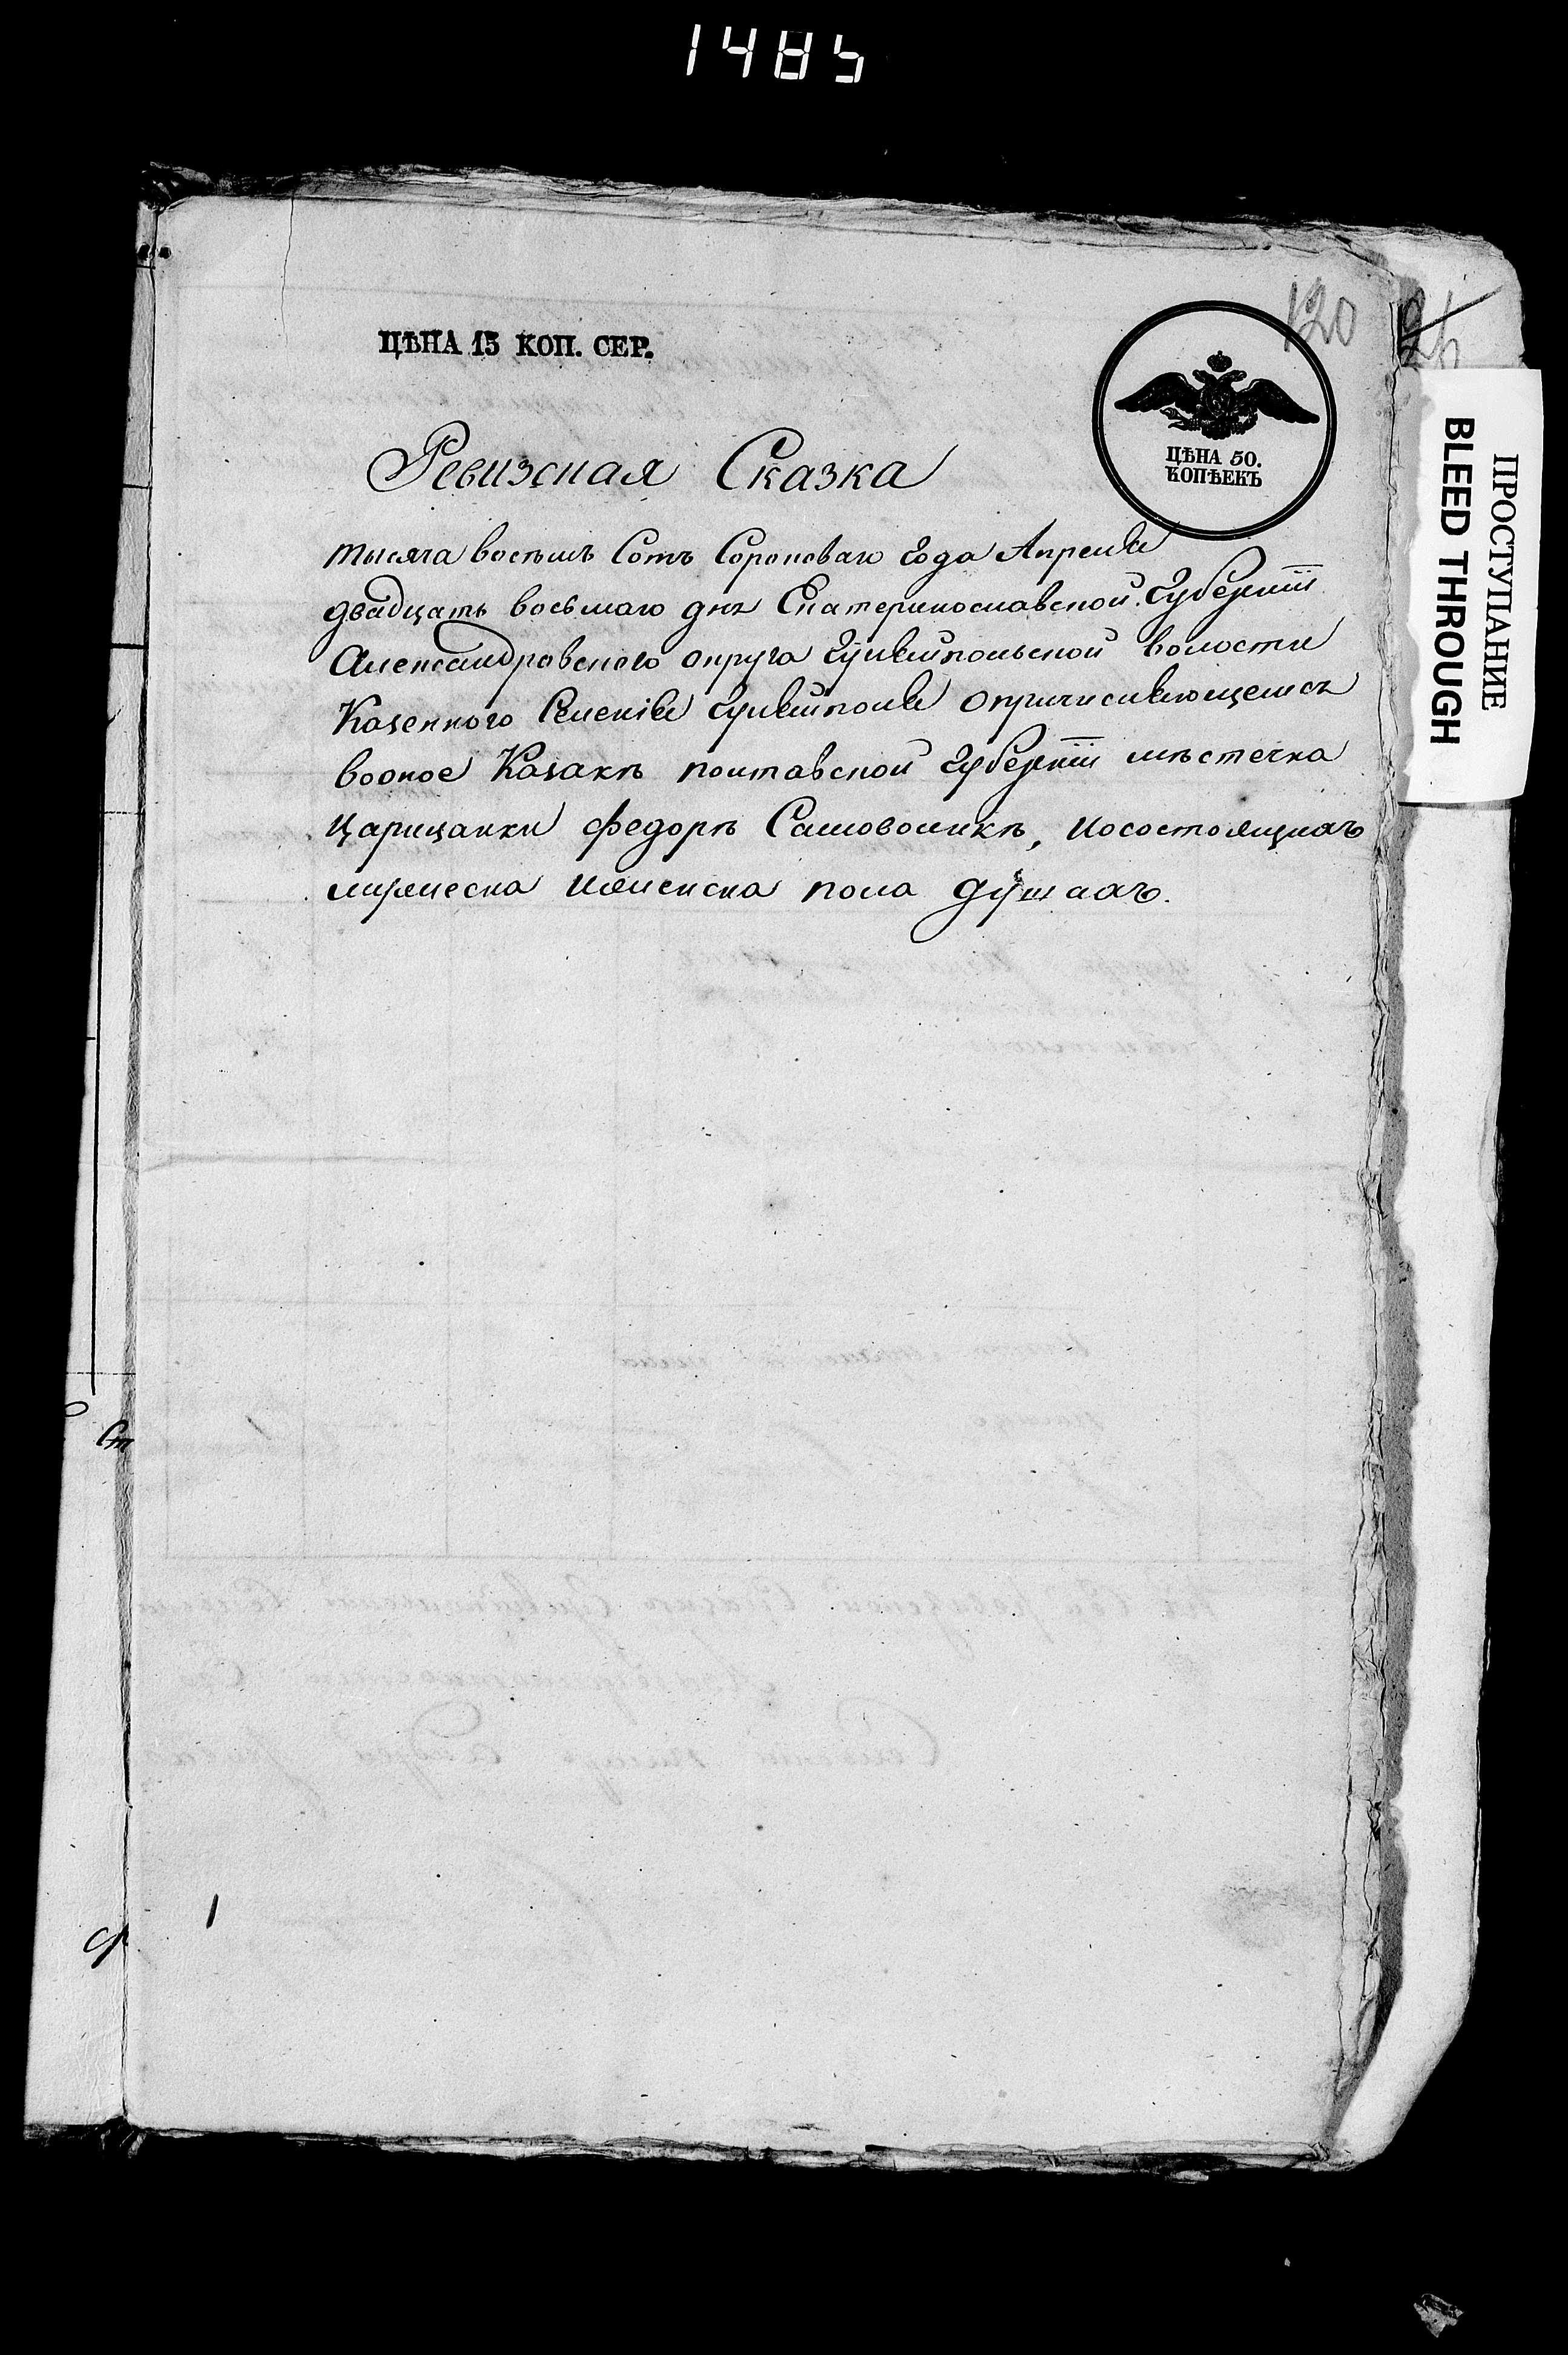 1485
120
26
ЦѢНА 15 КОП. СЕР.
ЦѢНА 50.
КОПѢЕКЪ
ПРОСТУПАНИЕ
BLEED THROUGH
Ревизская Сказка
тысяча восѣмъ Сотъ Сороковаго Года Апреля
двадцать восьмаго дня Екатеринославской Губернiи
Александровского округа Гуляйпольской волости
Казенного Селенiя Гуляйполя опричисляющемся
вооное Казакѣ полтавской Губернiи мѣстечка
Царицанки Федорѣ Самоволикѣ, иосостоящихъ
мужеска иженска пола душахъ.
Ст
1